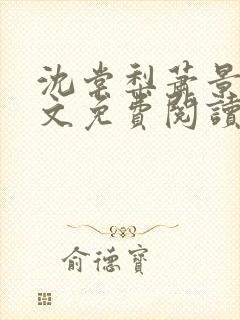 沈棠梨蕭景
文免費閱讀
俞德寶